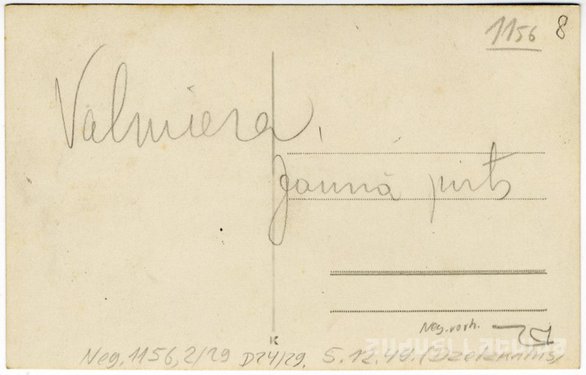 1156 8
Valmiera,
Jaunā pirts
Neg. vorh.
K
Neg. 1156, 2/29 D24/29. 5.12.49.